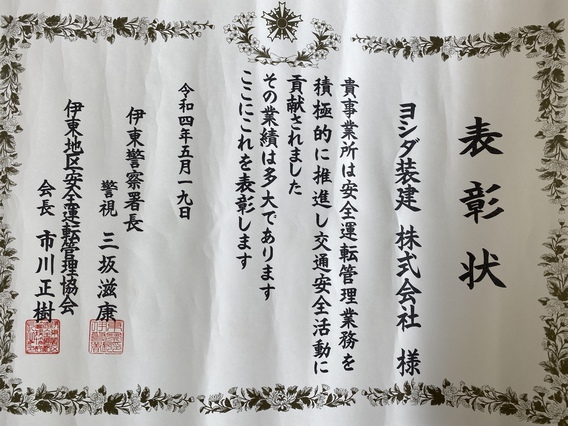 表彰状
ヨシダ装建 株式会社 様
貴事業所は安全運転管理業務を
積極的に推進し交通安全活動に
貢献されました
その業績は多大であります
ここにこれを表彰します
令和四年五月一九日
伊東警察署長
警視 三坂滋康
伊東地区安全運転管理協会
会長 市川正樹